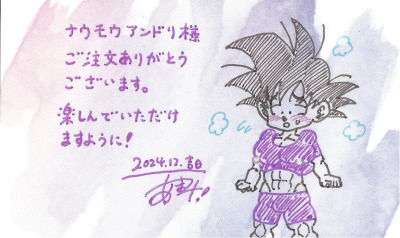 ナウモウ アンドリ様
ご注文ありがとう
ございます。
楽しんでいただけ
ますように!
2024.12.吉日